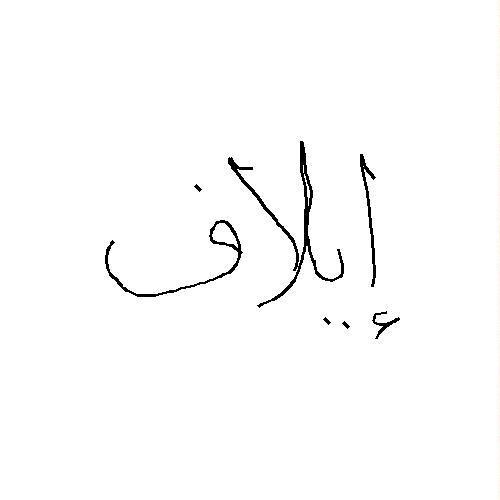 إيلاف